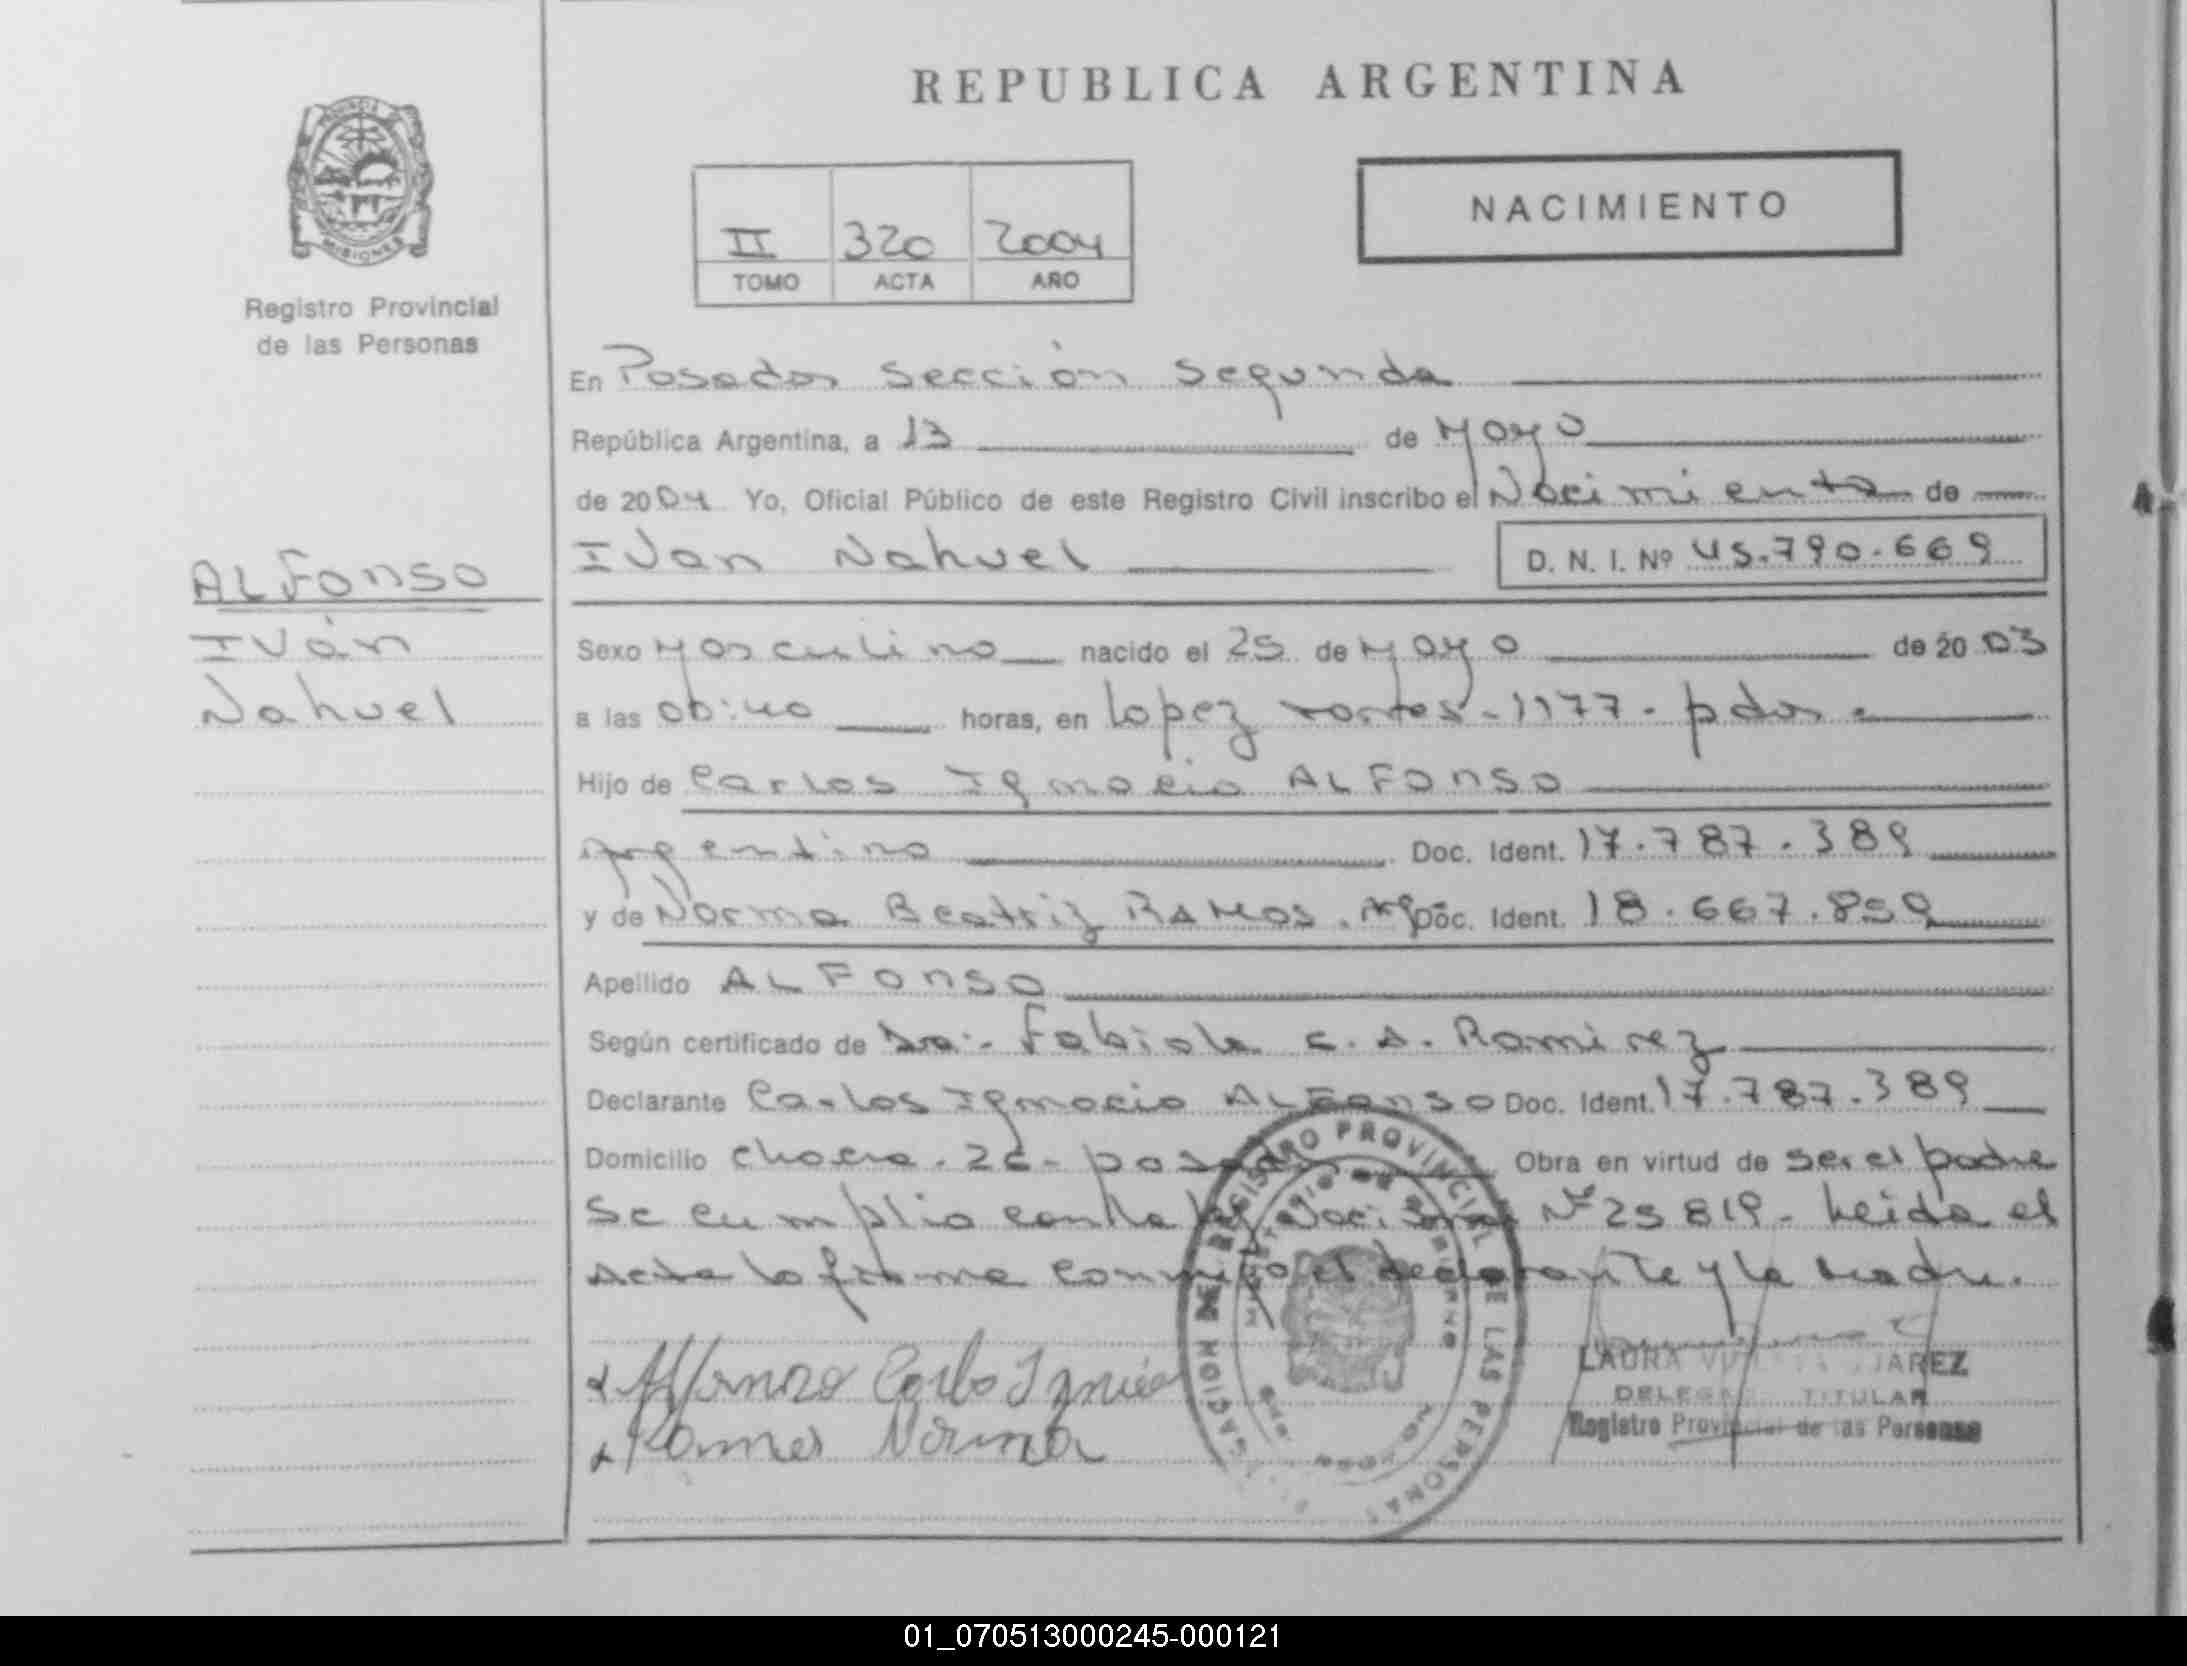 REPUBLICA ARGENTINA
PROVINCIA DE
MISIONES
Registro Provincial
de las Personas
II 320 2004
TOMO ACTA AÑO
NACIMIENTO
En Posadas Sección Segunda
República Argentina, a 13 de Mayo
de 2004 Yo, Oficial Público de este Registro Civil inscribo el Nacimiento de
Ivan Nahuel D. N. I. Nº 45.790.669
ALFonso
Iván
Nahuel
Sexo Masculino nacido el 25 de Mayo de 2003
a las 06:40 horas, en Lopez torres-1177-pdas.
Hijo de Carlos Ignacio ALFonso
Argentino Doc. Ident. 17.787.389
y de Norma Beatriz RAMOS. Arg Doc. Ident. 18.667.859
Apellido ALFonso
Según certificado de Dra:- Fabiola C. A. Ramirez
Declarante Carlos Ignacio ALFonso Doc. Ident. 17.787.389
Domicilio chacra. 26- posadas Obra en virtud de ser el padre
Se cumplio con la ley Nacional Nº 25819- Leida el
Acta la firma conmigo el declarante y la madre.
Alfonzo Carlo Ignacio
Ramos Norma
REGISTRO PROVINCIAL DE LAS PERSONAS
MINISTERIO DE GOBIERNO
LAURA JUAREZ
DELEGADA TITULAR
Registro Provincial de las Personas
01_070513000245-000121